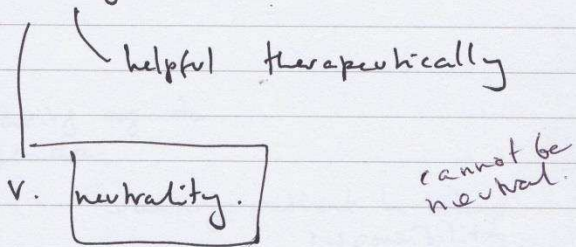 helpful therapeutically
v. neutrality.
cannot be
neutral.